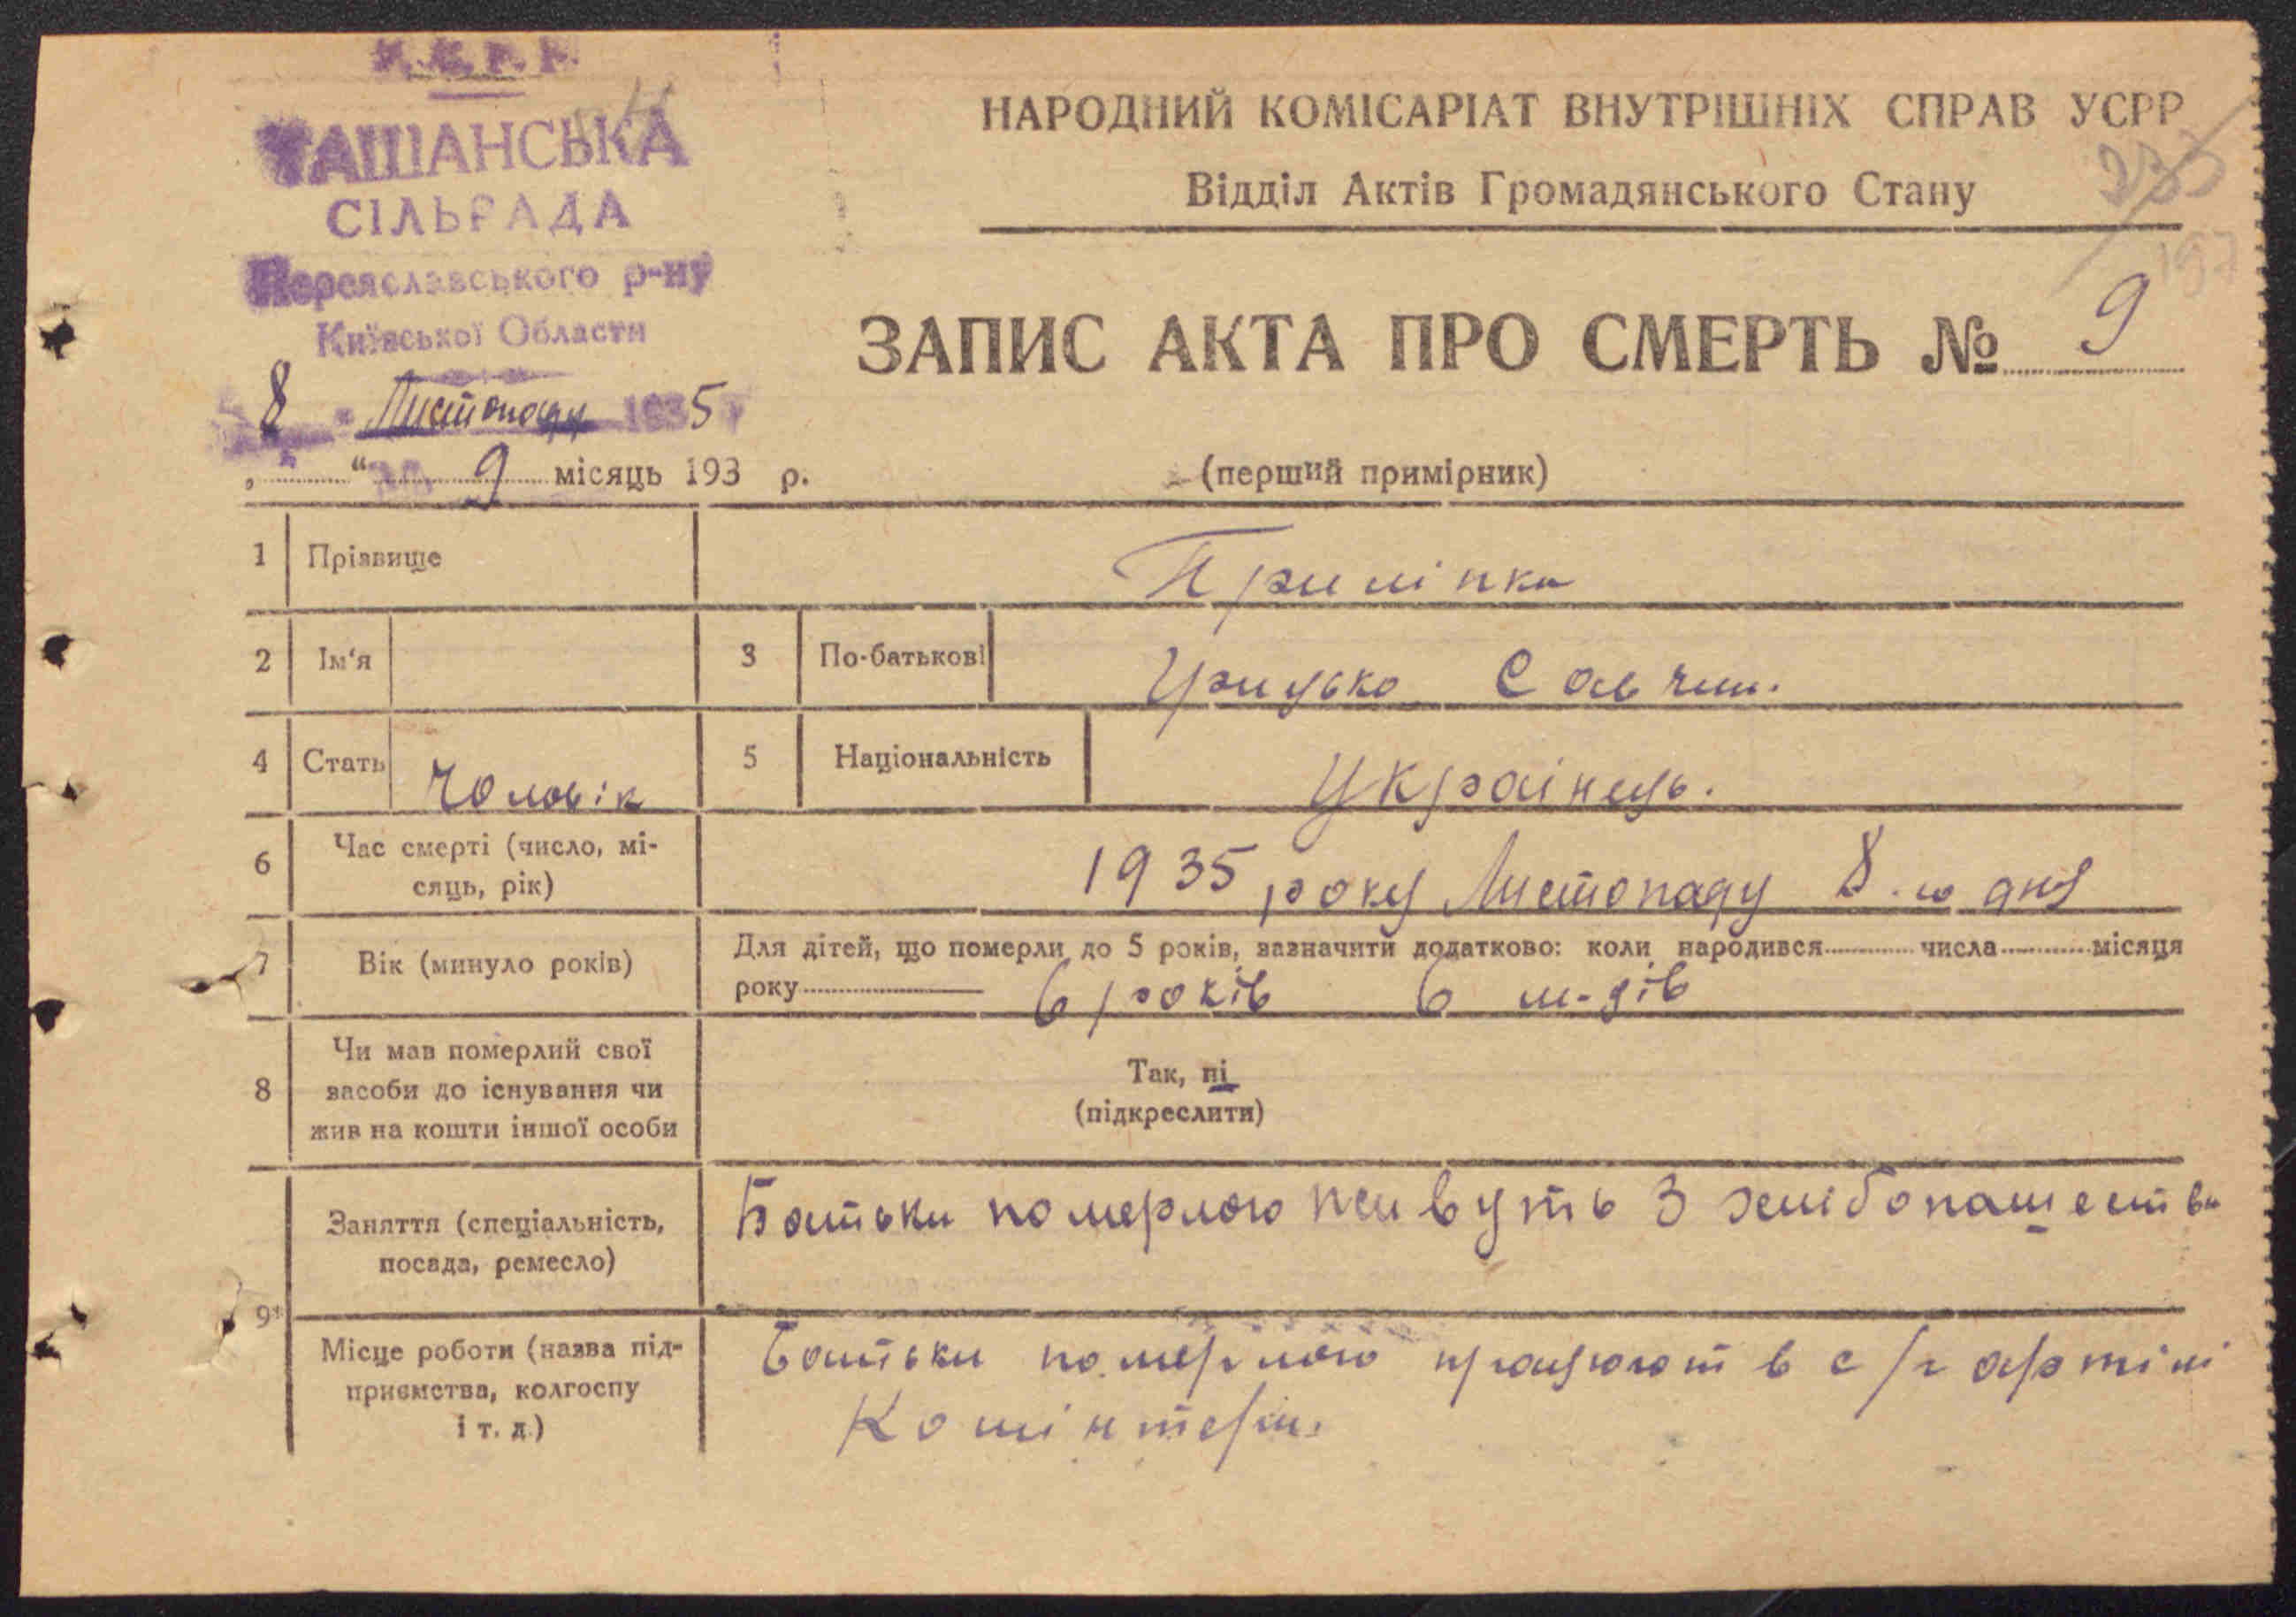 У.С.Р.Р.
ТАШАНСЬКА
СІЛЬРАДА
Переяславського р-ну
Київської Области
8 Листопаду 1935
№ 9
„ “ місяць 193 р.
НАРОДНИЙ КОМІСАРІАТ ВНУТРІШНІХ СПРАВ УСРР
Відділ Актів Громадянського Стану
233
197
ЗАПИС АКТА ПРО СМЕРТЬ № 9
(перший примірник)
1 Прізвище Приліпка
2 Ім‘я 3 По-батькові Грицько Савчин.
4 Стать Чоловік 5 Національність Українець.
6 Час смерті (число, мі-
сяць, рік) 1935 року Листопаду 8-го дня
7 Вік (минуло років) Для дітей, що померли до 5 років, зазначити додатково: коли народився числа місяця
року 6 років 6 м-ців
8 Чи мав померлий свої
засоби до існування чи
жив на кошти іншої особи
Так, ні
(підкреслити)
9* Заняття (спеціальність,
посада, ремесло)
Батьки померлого живуть З хлібопашества
Місце роботи (назва під-
приємства, колгоспу
і т. д.)
Батьки померлого працюют в с/г артілі
Комінтерн.